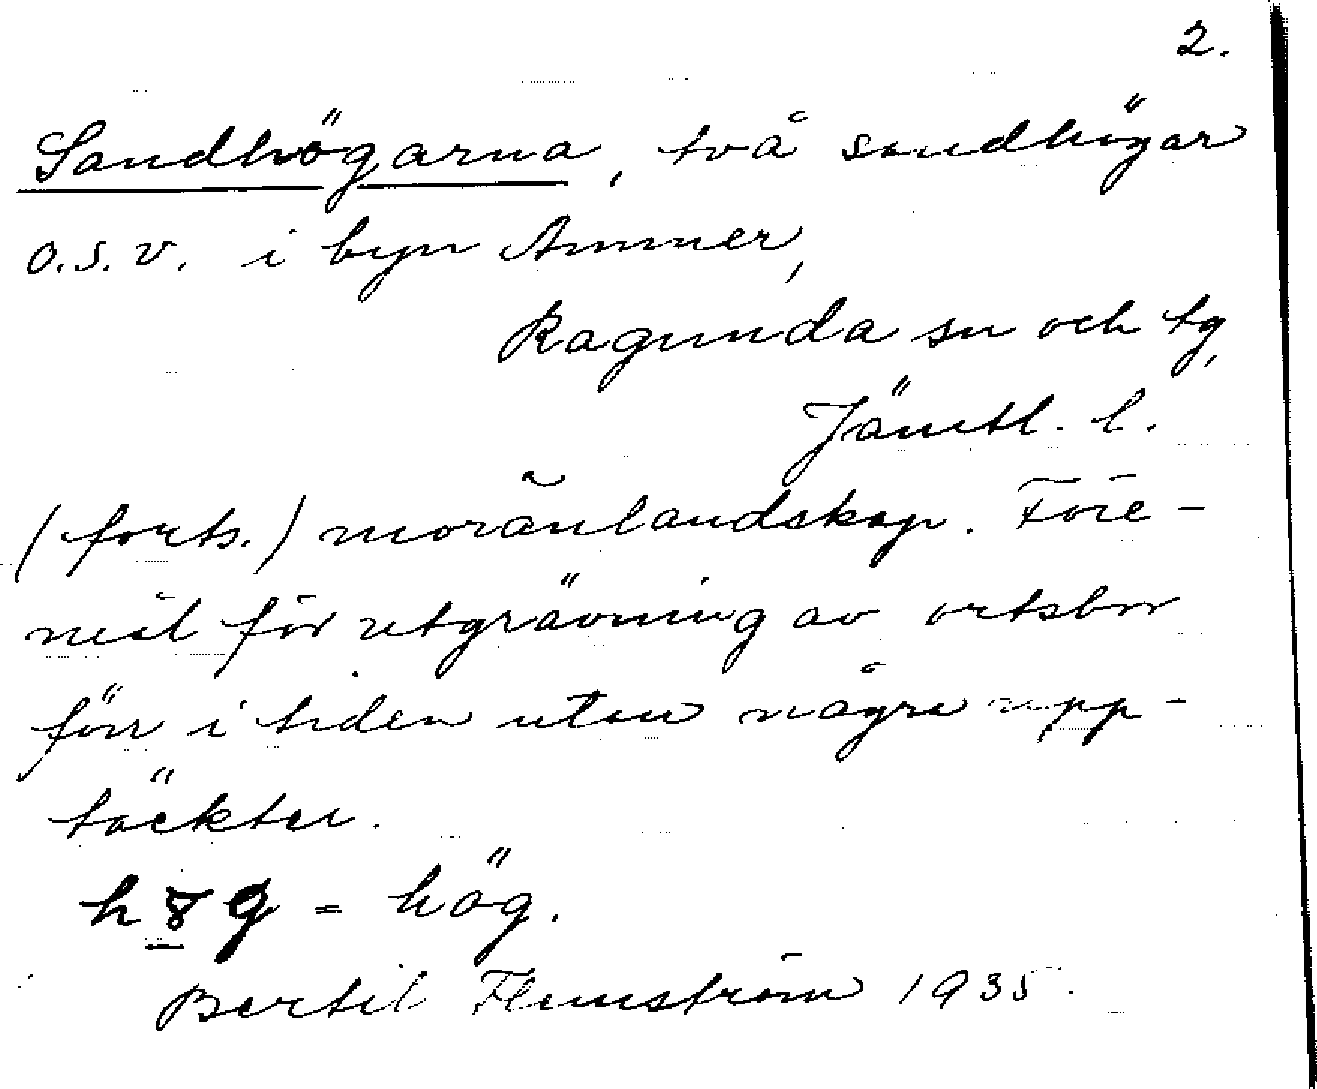 2.
Sandhögarna, två sandhögar
o.s.v. i byn Ammer,
Ragunda sn och tg,
Jämtl. l.
(forts.) moränlandskap. Före-
mål för utgrävning av ortsbor
förr i tiden utan några upp-
täckter.
= hög.
Bertil Flemström 1935.